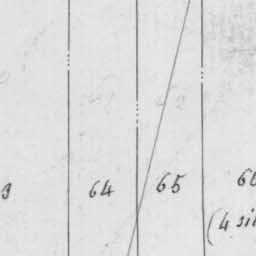 3 64 65 66
(4 sil